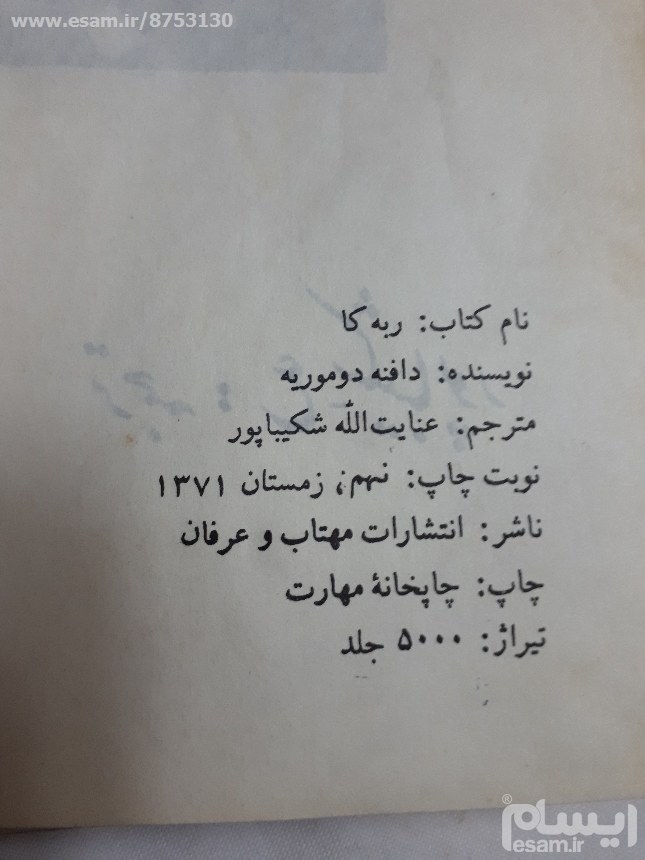 www.esam.ir/8753130
نام کتاب: ربه کا
نویسنده: دافنه دوموریه
مترجم: عنایت‌الله شکیباپور
نوبت چاپ: نهم، زمستان ۱۳۷۱
ناشر: انتشارات مهتاب و عرفان
چاپ: چاپخانهٔ مهارت
تیراژ: ۵۰۰۰ جلد
ایسام®
esam.ir